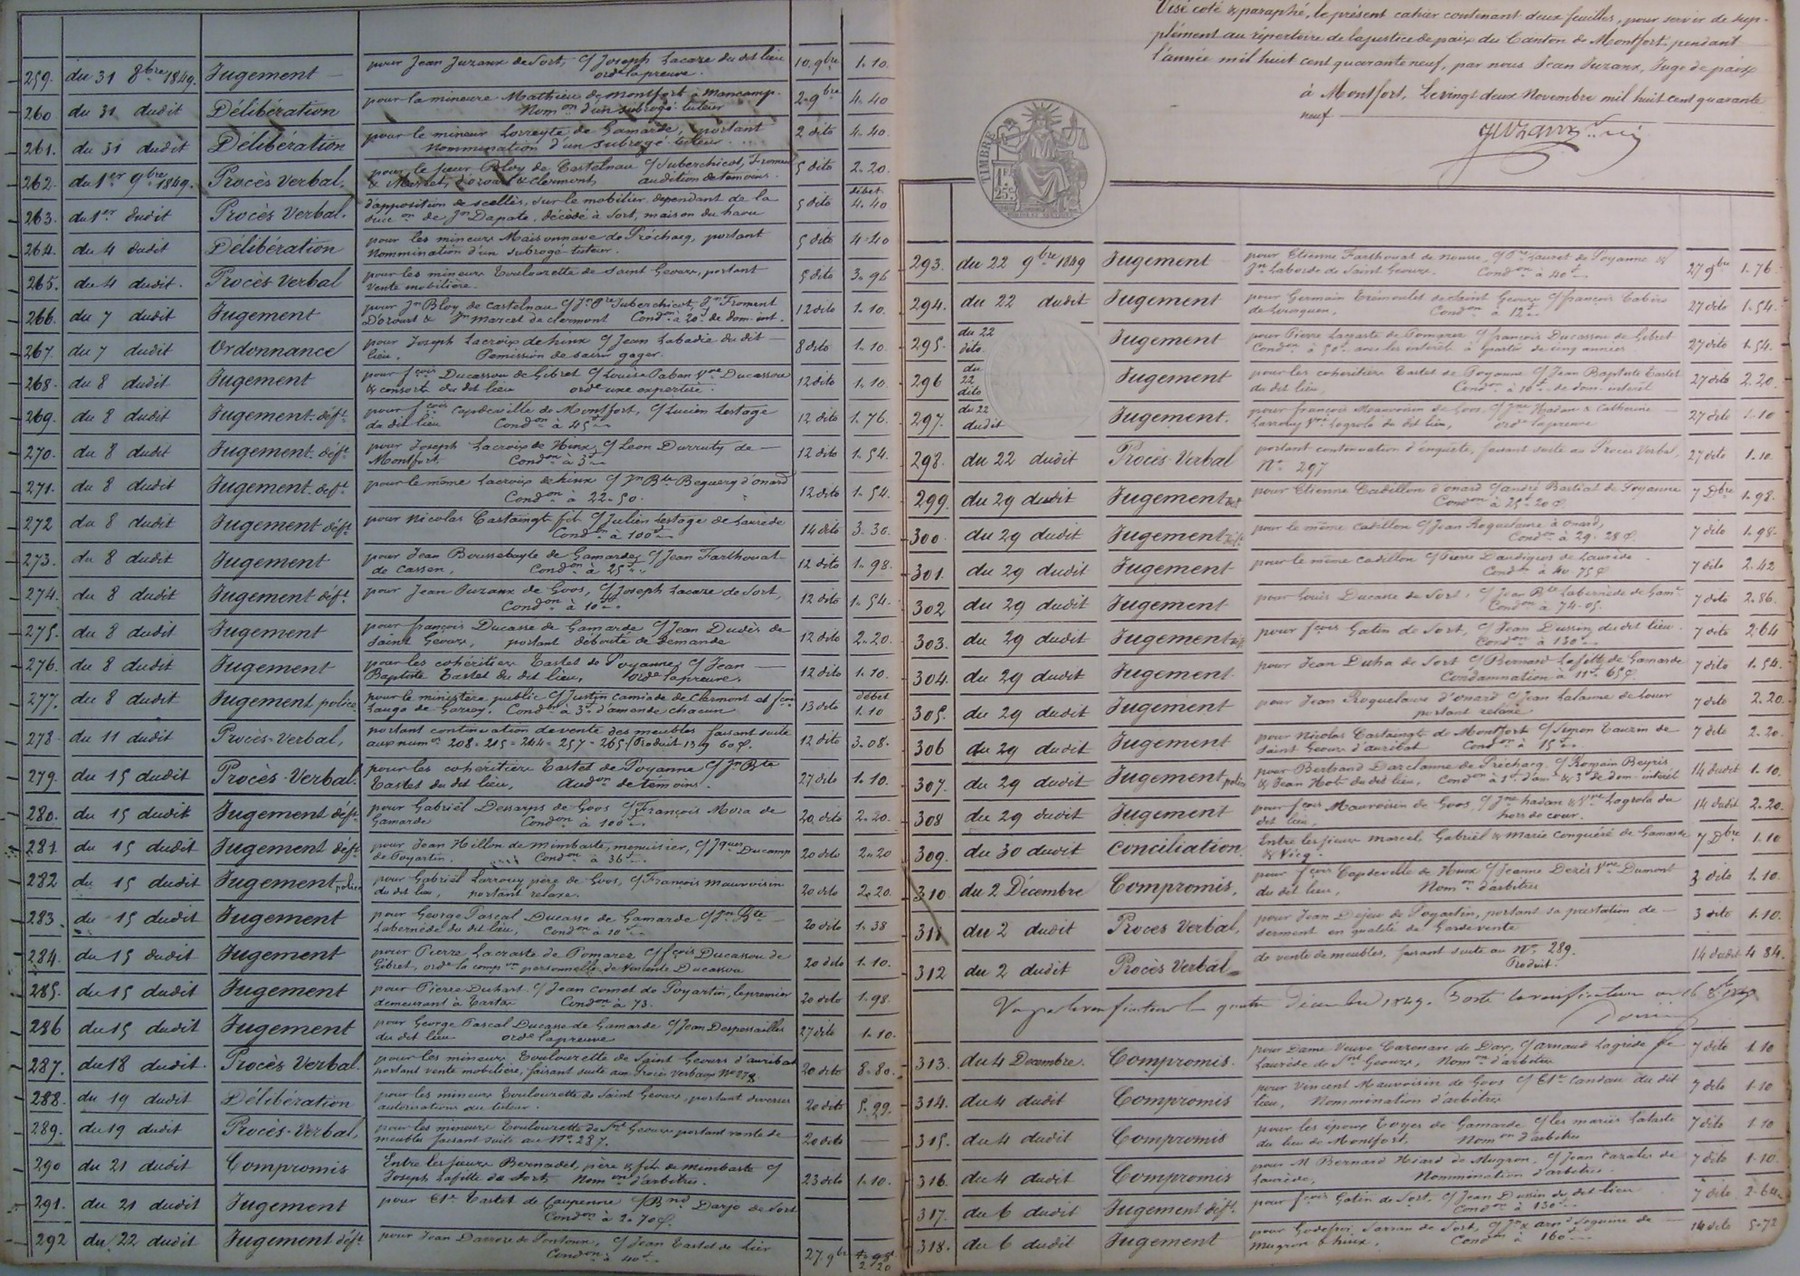 259. du 31 8bre 1849. Jugement pour Jean Juzanx de Sort, c/ Joseph Lacaze du dit lieu 10. 9bre 1.10.
ordce la preuve.
260 du 31 dudit Délibération pour la mineure Mathieu de Montfort 2 9bre 4.40
Nomon d'un subrogé tuteur
261. du 31 dudit Délibération pour le mineur Lovreyte de Gamarde, portant 2 dito 4.40.
Nommination d'un subrogé tuteur
262. du 1er 9bre 1849. Procès Verbal. pour le sieur Bloy de Castelnau c/ Suberchicot, Froment 5 dito 2.20.
& Marcel, d'Ozourt & Clermont, audition de témoins.
263. du 1er dudit Procès Verbal. d'apposition de scellés, sur le mobilier dépendant de la 5 dito débet 4.40
sucon de Jn Dapate, décédé à Sort, maison du haou
264. du 4 dudit Délibération pour les mineurs Maisonnave de Préchacq, portant 5 dito 4.40
Nommination d'un subrogé tuteur.
265. du 4 dudit. Procès Verbal pour les mineurs Toulourette de Saint Geours, portant 5 dito 3.96
Vente mobilière.
266. du 7 dudit Jugement pour Jn Bloy de Castelnau c/ Jn Pre Suberchicot, Jn Froment 12 dito 1.10.
D'ozourt & Jn Marcel de Clermont Condon à 20f de dom. int.
267. du 7 dudit Ordonnance pour Joseph Lacroix de hinx c/ Jean Labadie du dit 8 dito 1.10.
lieu. Permission de saisir gager.
268. du 8 dudit Jugement pour fçois Ducassou de Gibret c/ Louise Vve Ducassou 12 dito 1.10.
& consort du dit lieu ordce une expertise.
269. du 8 dudit Jugement déft. pour fçois Capdeville de Montfort, c/ Lucien Lestage 12 dito 1.76.
du dit lieu Condon à 45f
270. du 8 dudit Jugement déft. pour Joseph Lacroix de Hinx c/ Léon Darruty de 12 dito 1.54.
Montfort. Condon à 3f
271. du 8 dudit Jugement déft pour le même Lacroix de hinx c/ Jn Bte Beguery d'onard 12 dito 1.54.
Condon à 22.50.
272 du 8 dudit Jugement déft. pour Nicolas Castaingt fils c/ Julien Lestage de Laurede 14 dito 3.30.
Condon à 100f
273. du 8 dudit Jugement pour Jean Boussebayle de Gamarde, c/ Jean Farthouat 12 dito 1.98.
de Cassen, Condon à 25f
274. du 8 dudit Jugement déft. pour Jean Juzanx de Goos, c/ Joseph Lacaze de Sort, 12 dito 1.54.
Condon à 10f
275. du 8 dudit Jugement pour françois Ducasse de Gamarde c/ Jean Dudès de 12 dito 2.20.
Saint Geours, portant déboute de demande
276. du 8 dudit Jugement pour les cohéritiers Tastet de Poyanne, c/ Jean 12 dito 1.10.
Baptiste Tastet du dit lieu, ordce la preuve.
277. du 8 dudit Jugement police pour le ministère public c/ Justin Camiade de Clermont et fçois 13 dito débet 1.10
Lauga de Garrey. Condon à 3f d'amende chacun
278 du 11 dudit Procès-Verbal, portant continuation de vente des meubles faisant suite 12 dito 3.08.
aux numos 208-215-244-257-265. Produit 1319 60c.
279. du 15 dudit Procès-Verbal. pour les cohéritiers Tastet de Poyanne c/ Jn Bte 27 dito 1.10.
Tastet du dit lieu, Audon de témoins.
280. du 15 dudit Jugement déft. pour Gabriël Dessarps de Goos c/ François Mora de 20 dito 2.20.
Gamarde Condon à 100f
281 du 15 dudit Jugement déft. pour Jean Hillon de mimbaste, menuisier, c/ Jques Ducamp 20 dito 2.20
de Poyartin. Condon à 36f
282 du 15 dudit Jugement police pour Gabriël Larroux père de Goos, c/ François Mauvoisin 20 dito 2.20.
du dit lieu, portant relaxe.
283. du 15 dudit Jugement pour George Pascal Ducasse de Gamarde c/ Jn Bte 20 dito 1.38
Labernède du dit lieu, Condon à 10f
284. du 15 dudit Jugement pour Pierre Lacraste de Pomarez c/ fçois Ducassou de 20 dito 1.10.
Gibret, ordce la compon personnelle de Ventente Ducassou
285. du 15 dudit Jugement pour Pierre Duhart c/ Jean Comet de Poyartin, le premier 20 dito 1.98.
demeurant à Castex Condon à 73.
286 du 15 dudit Jugement pour George Pascal Ducasse de Gamarde c/ Jean Despessailles 27 dito 1.10.
du dit lieu ordce la preuve
287. du 18 dudit. Procès Verbal. pour les mineurs Toulourette de Saint Geours d'auribat 20 dito 8.80.
portant vente mobilière, faisant suite aux Procès Verbaux No 278
288. du 19 dudit Délibération pour les mineurs Toulourette de Saint Geours, portant diverses 20 dito 5.29.
autorisations au tuteur.
289. du 19 dudit Procès-Verbal, pour les mineurs Toulourette de St Geours portant vente de 20 dito
meubles faisant suite au No. 287.
290 du 21 dudit Compromis Entre les sieurs Bernadet, père & fils de mimbaste c/ 23 dito 1.10.
Joseph Lafitte de Sort Nomon d'arbitres.
291. du 21 dudit Jugement pour Ete Tastet de Caupenne c/ Bnd Darjo de Sort
Condon à 2.70c.
292 du 22 dudit Jugement déft pour Jean Darroze de Pontonx, c/ Jean Tastet de lier 27. 9bre 2.20
Condon à 40f
Visé coté & paraphé, le présent cahier contenant deux feuilles, pour servir de sup-
plément au répertoire de la justice de paix du Canton de Montfort, pendant
l'année mil huit cent quarante neuf, par nous Jean Juzanx, Juge de paix
à Montfort, Le vingt deux Novembre mil huit cent quarante
neuf
TIMBRE
1F 25c
293. du 22 9bre 1849 Jugement pour Etienne Farthouat de nousse, c/ Pre Lauret de Poyanne & 27 9bre 1.76.
Jn Laborde de Saint Geours. Condon à 40f
294. du 22 dudit Jugement pour Germain Trémoulet de Saint Geours c/ françois Cabiro 27 dito 1.54.
de Lourquen, Condon à 12f
295. du 22 dito. Jugement pour Pierre Lacaste de Pomarez c/ françois Ducassou de Gibret 27 dito 1.54.
Condon à 50f avec les intérêts à partir de cinq années
296 du 22 dito Jugement pour les cohéritiers Tastet de Poyanne c/ Jean Baptiste Tastet 27 dito 2.20.
du dit lieu, Condon à 10f de dom. intérêt
297. du 22 dudit Jugement. pour françois Mauvoisin de Goos, c/ Jne Hadan & Catherine 27 dito 1.10
Vve Lagrola du dit lieu, ordce la preuve
298. du 22 dudit Procès-Verbal portant continuation d'enquête, faisant suite au Procès Verbal, 27 dito 1.10.
No. 297
299. du 29 dudit Jugement déft pour Etienne Cadillon d'onard c/ andré Bastiat de Poyanne 7 Dbre 1.98.
Condon à 25f 20c.
300. du 29 dudit Jugement déft. pour le même Cadillon c/ Jean Roquelaure, à onard, 7 dito 1.98.
Condon à 29. 28c.
301. du 29 dudit Jugement pour le même Cadillon c/ Pierre Daudignos de Laurède. 7 dito 2.42
Condon à 40. 75c
302 du 29 dudit Jugement pour Louis Ducasse de Sort, c/ Jean Bte Labernède de Game 7 dito 2.86.
Condon à 74.05.
303. du 29 dudit Jugement déft pour fçois Gatin de Sort, c/ Jean Dussin du dit lieu 7 dito 2.64
Condon à 130f
304. du 29 dudit Jugement pour Jean Duha de Sort c/ Bernard Lafitte de Gamarde 7 dito 1.54.
Condamnation à 11f. 65c.
305. du 29 dudit Jugement pour Jean Roquelaure d'onard c/ Jean Lalanne de Louer 7 dito 2.20.
portant relaxe.
306 du 29 dudit Jugement pour Nicolas Castaingt de Montfort c/ Simon Tauzin de 7 dito 2.20.
Saint Geours d'auribat Condon à 15f
307. du 29 dudit Jugement police pour Bertrand Darclanne de Préchacq. c/ Romain Beyris 14 dudit 1.10.
& Jean du dit lieu, Condon à 1f d'am. & 3f de dom. intérêt
308 du 29 dudit Jugement pour fçois Mauvoisin de Goos, c/ Jne hadan & Vve Lagrola du 14 dudit 2.20.
dit lieu, hors de cour.
309. du 30 dudit Conciliation. Entre les sieurs Marcel Gabriël & Marie Conquéré de Gamarde 7 Dbre 1.10
& Vicq.
310 du 2 Décembre Compromis. pour fçois Capdeville de Hinx c/ Jeanne Dezès Vve Dumont 3 dito 1.10.
du dit lieu, Nomon d'arbitres
311 du 2 dudit Procès Verbal, pour Jean Dejou de Poyartin, portant sa prestation de 3 dito 1.10.
serment en qualité de Garde vente
312 du 2 dudit Procès Verbal de vente de meubles, faisant suite au No. 289. 14 dudit 4.84.
Produit:
Vu par le vérificateur le quatre Décembre 1849.
313. du 4 Décembre. Compromis. pour Dame Veuve de Dax, c/ arnaud Lagrède fs 7 dito 1.10
Laurède de St Geours, Nomon d'arbitres
314. du 4 dudit Compromis pour Vincent Mauvoisin de Goos c/ Ete Candau du dit 7 dito 1.10
lieu, Nommination d'arbitres
315. du 4 dudit Compromis pour les époux Toyes de Gamarde c/ les mariés Labaste 7 dito 1.10
du lieu de Montfort, Nomon d'arbitres
316. du 4 dudit Compromis pour M Bernard Hiard de Mugron, c/ Jean Cazales de 7 dito 1.10.
Laurède, Nommination d'arbitres.
317. du 6 dudit Jugement déft. pour fçois Gatin de Sort, c/ Jean Dussin du dit lieu 7 dito 2.64.
Condon à 130f
318. du 6 dudit Jugement pour Godefroi Sarran de Sort, c/ Seguine de 14 dito 5.72
Mugron & hinx. Condon à 160f